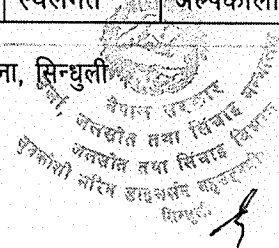 स्थलगत अल्पकाली
ना, सिन्धुली
नेपाल सरकार
ऊर्जा, जलस्रोत तथा सिंचाइ मन्त्रालय
जलस्रोत तथा सिंचाइ विभाग
सुनकोशी मरिन डाइभर्सन बहुउद्देश्यीय
सिन्धुली